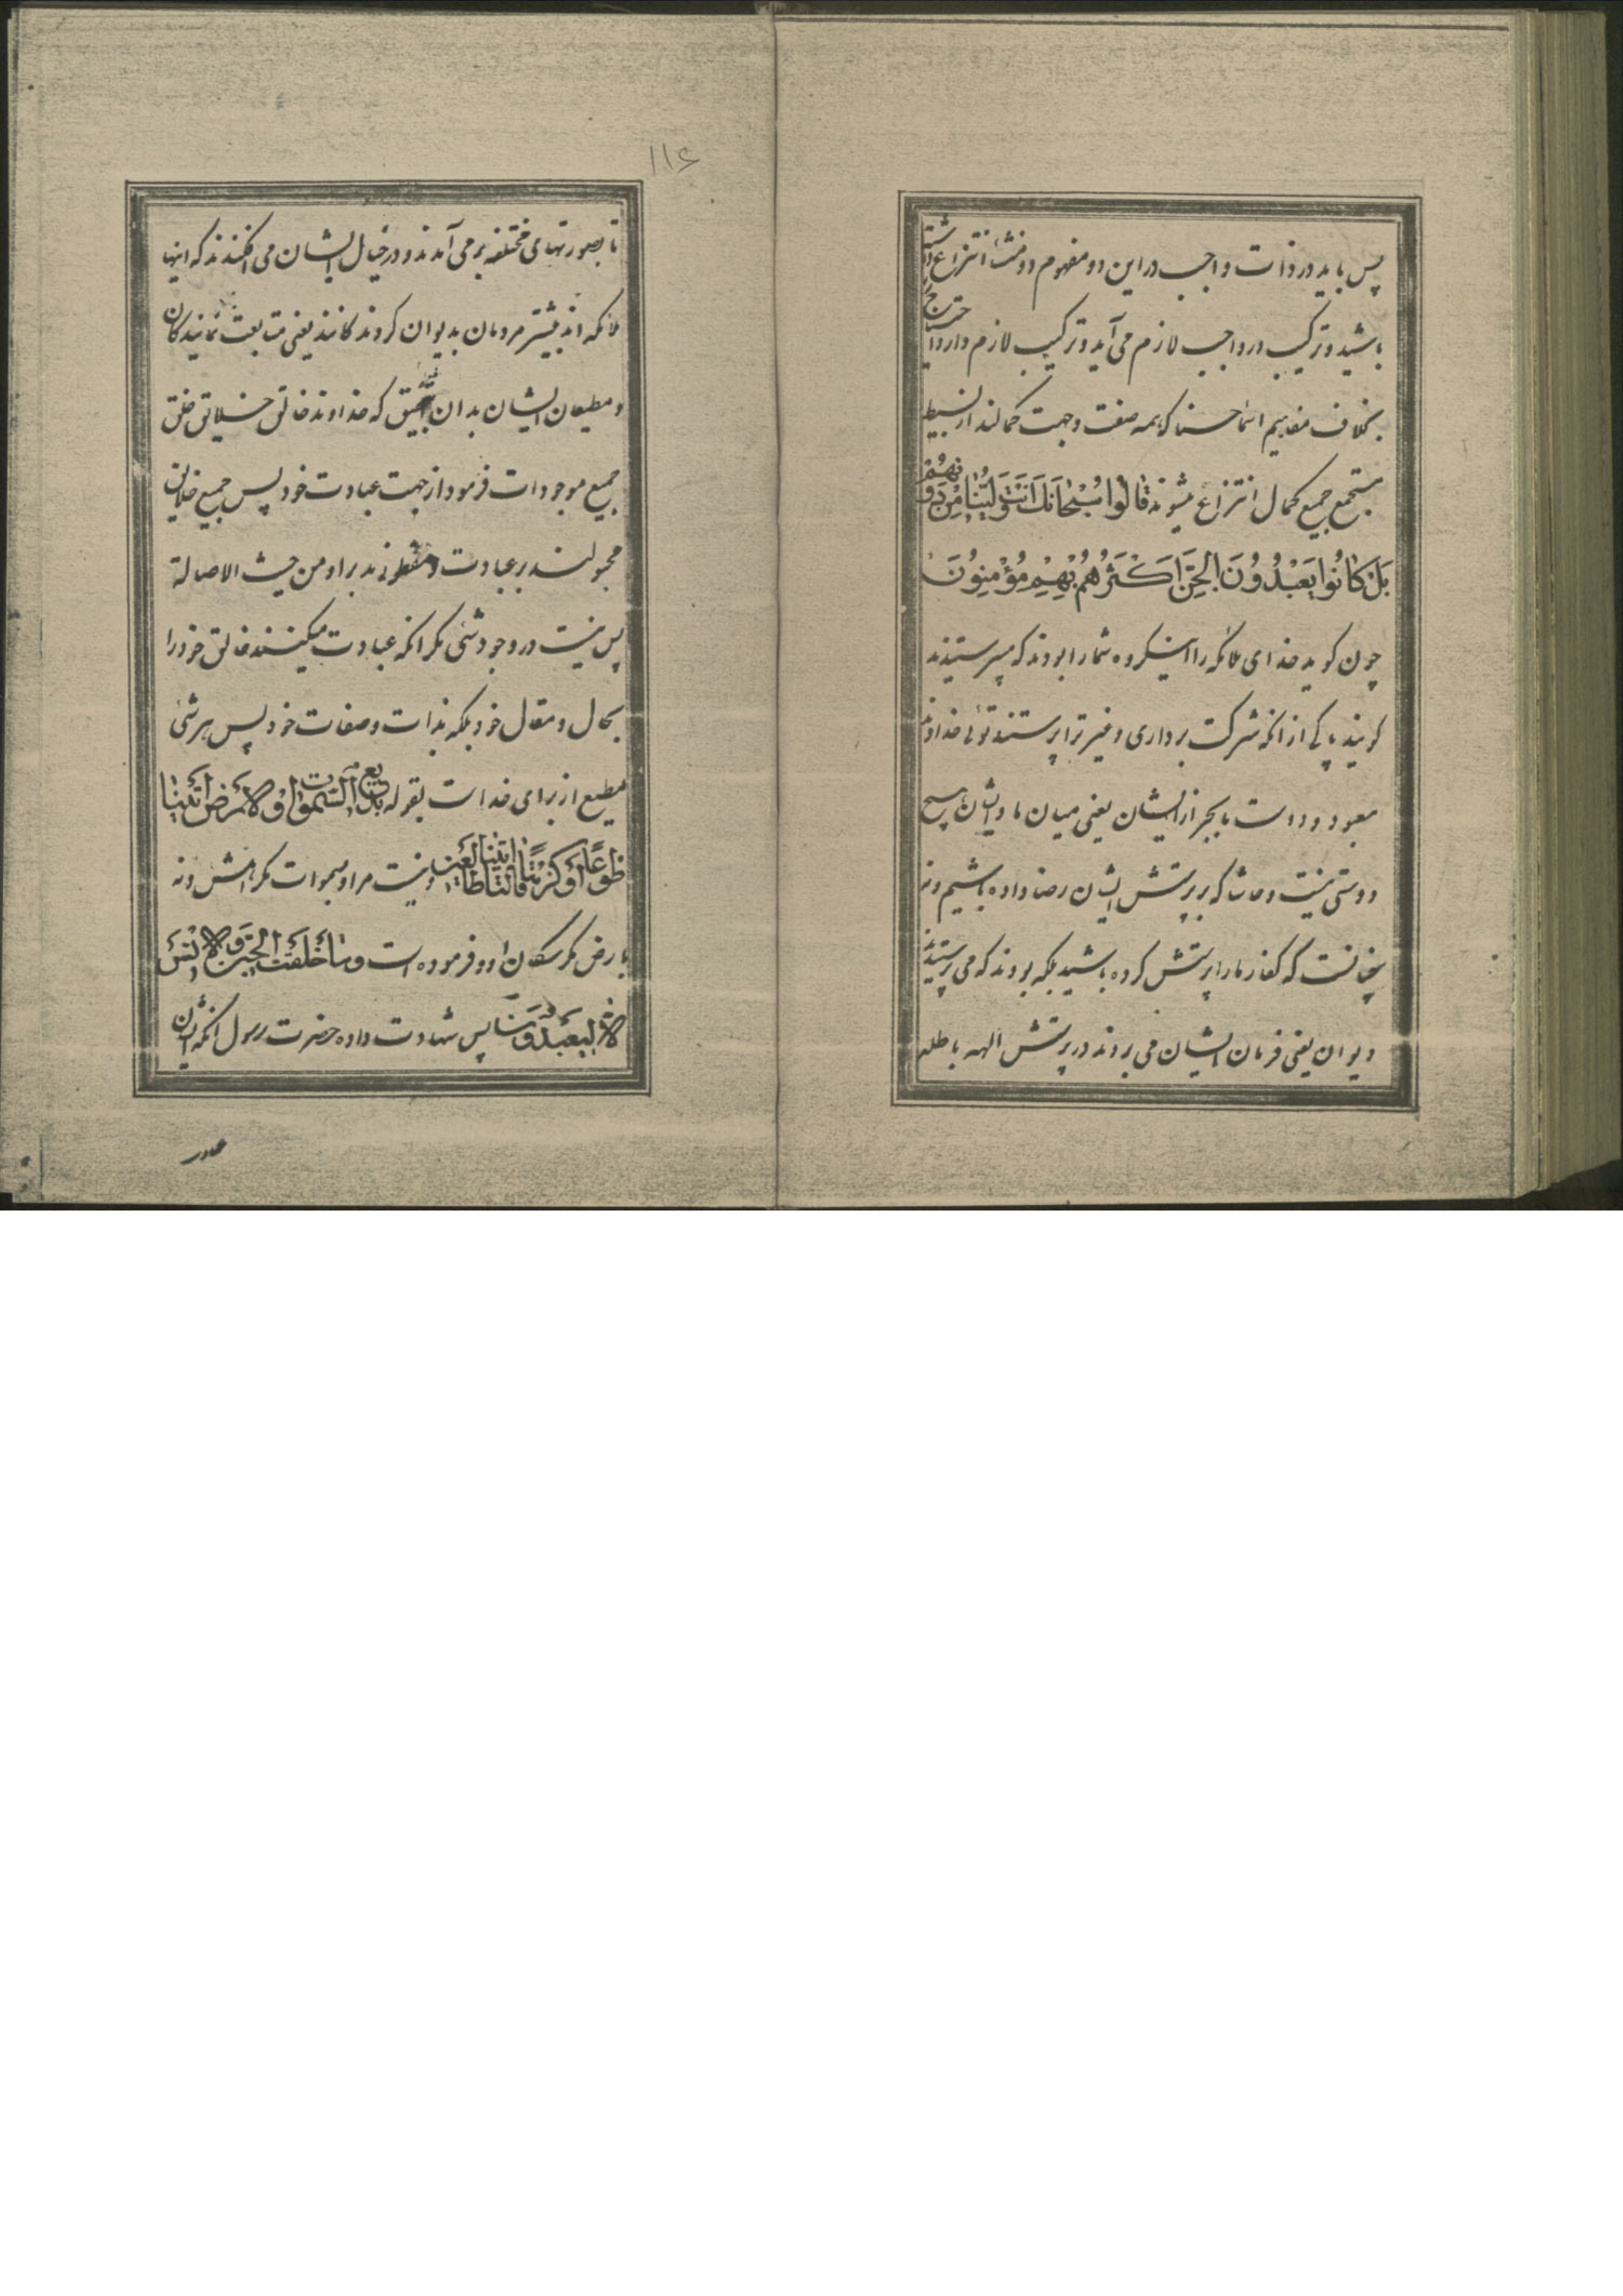 پس باید در ذات واجب در این دو مفهوم دو منشأ انتزاع داشته
باشید و ترکیب در واجب لازم می آید و ترکیب لازم دارد احتیاج را
بخلاف مفاهیم اسماء حسنا که همه صفت و جهت کمالند از بسیط
مستجمع جمیع کمال انتزاع میشوند قَالُوا سُبْحَانَكَ أَنْتَ وَلِيُّنَا مِنْ دُونِهِمْ
بَلْ كَانُوا يَعْبُدُونَ الْجِنَّ أَكْثَرُهُمْ بِهِمْ مُؤْمِنُونَ
چون کوید خدای ملائکه را اینکروه شما را بودند که میپرستیدند
کویند پاکی از انکه شرکت برداری و غیر ترا پرستند توئی خداوند
معبود و دوست ما بجز از ایشان یعنی میان ما و ایشان هیچ
دوستی نیست و حاشا که بر پرستش ایشان رضا داده باشیم و نه
چنانست که کفار ما را پرستش کرده باشید بلکه بودند که می پرستیدند
دیوان یعنی فرمان ایشان می بردند در پرستش الهه باطله
۱۱۶
تا بصورتهای مختلفه بر می آمدند و در خیال ایشان می افکندند که اینها
ملائکه اند بیشتر مردمان بدیوان کروندکانند یعنی متابعت نمایندکان
و مطیعان ایشان بدان که خداوند خالق خلایق خلق
جمیع موجودات فرمود از جهت عبادت خود پس جمیع خلایق
مجبولند بر عبادت و مفطورند بر او من حیث الاصالة
پس نیست در وجود شئی مکر انکه عبادت میکنند خالق خود را
بحال و مقال خود بلکه بذات و صفات خود پس هر شئی
مطیع از برای خداست بقوله بَدِيعُ السَّمٰوَاتِ وَالْأَرْضِ ائْتِيَا
طَوْعًا أَوْ كَرْهًا قَالَتَا أَتَيْنَا طَائِعِينَ و نیست مراد بسموات مکر اهلش و نه
بارض مکر سکان او و فرموده است وَمَا خَلَقْتُ الْجِنَّ وَالْإِنْسَ
إِلَّا لِيَعْبُدُونِ پس شهادت داده حضرت رسول انکه ایشان